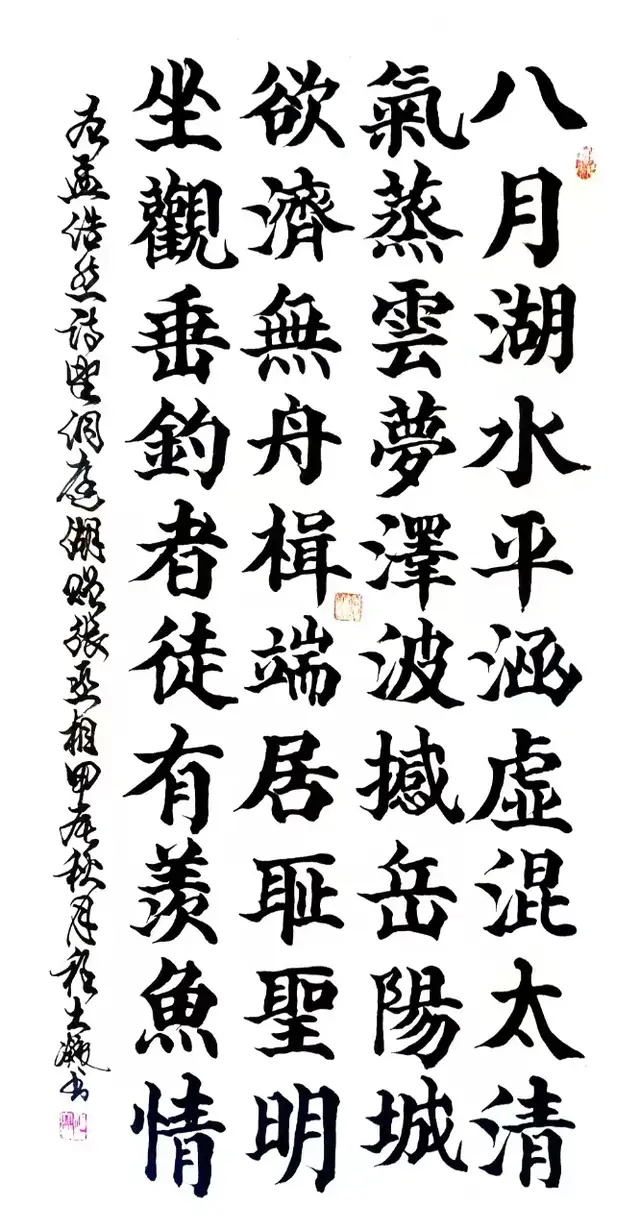 八月湖水平涵虛混太清
氣蒸雲夢澤波撼岳陽城
欲濟無舟楫端居耻聖明
坐觀垂釣者徒有羨魚情
右孟浩然詩望洞庭湖贈張丞相甲辰秋月程大書